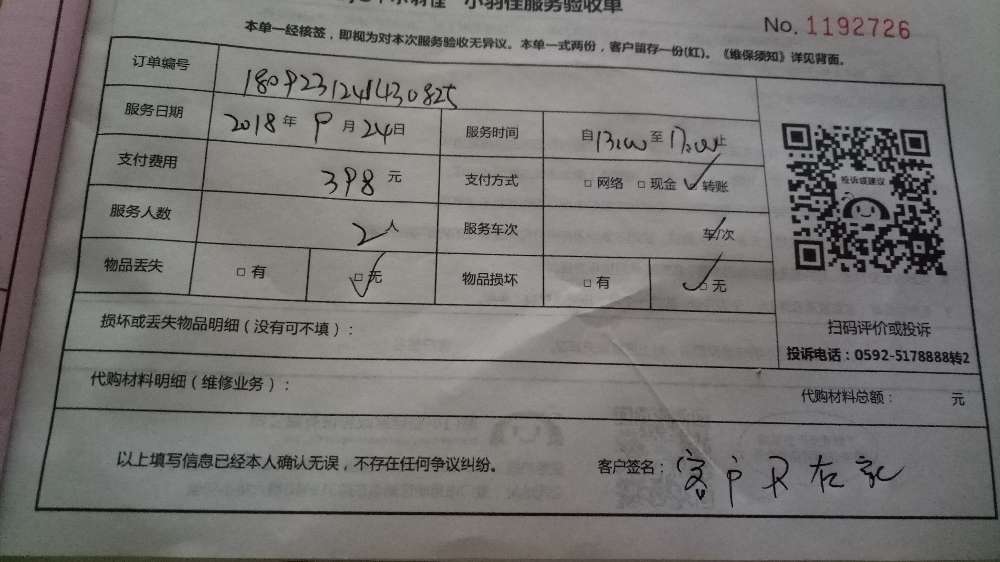 小羽佳服务验收单
No. 1192726
本单一经核签，即视为对本次服务验收无异议。本单一式两份，客户留存一份(红)。《维保须知》详见背面。
订单编号 1809231241430825
服务日期 2018年9月24日 服务时间 自13:00至17:00止
支付费用 398元 支付方式 □网络 □现金 ☑转账
服务人数 2人 服务车次 车/次
物品丢失 □有 ☑无 物品损坏 □有 ☑无
投诉或建议
扫码评价或投诉
投诉电话：0592-5178888转2
损坏或丢失物品明细（没有可不填）：
代购材料明细（维修业务）： 代购材料总额： 元
以上填写信息已经本人确认无误，不存在任何争议纠纷。 客户签名：客户不在家